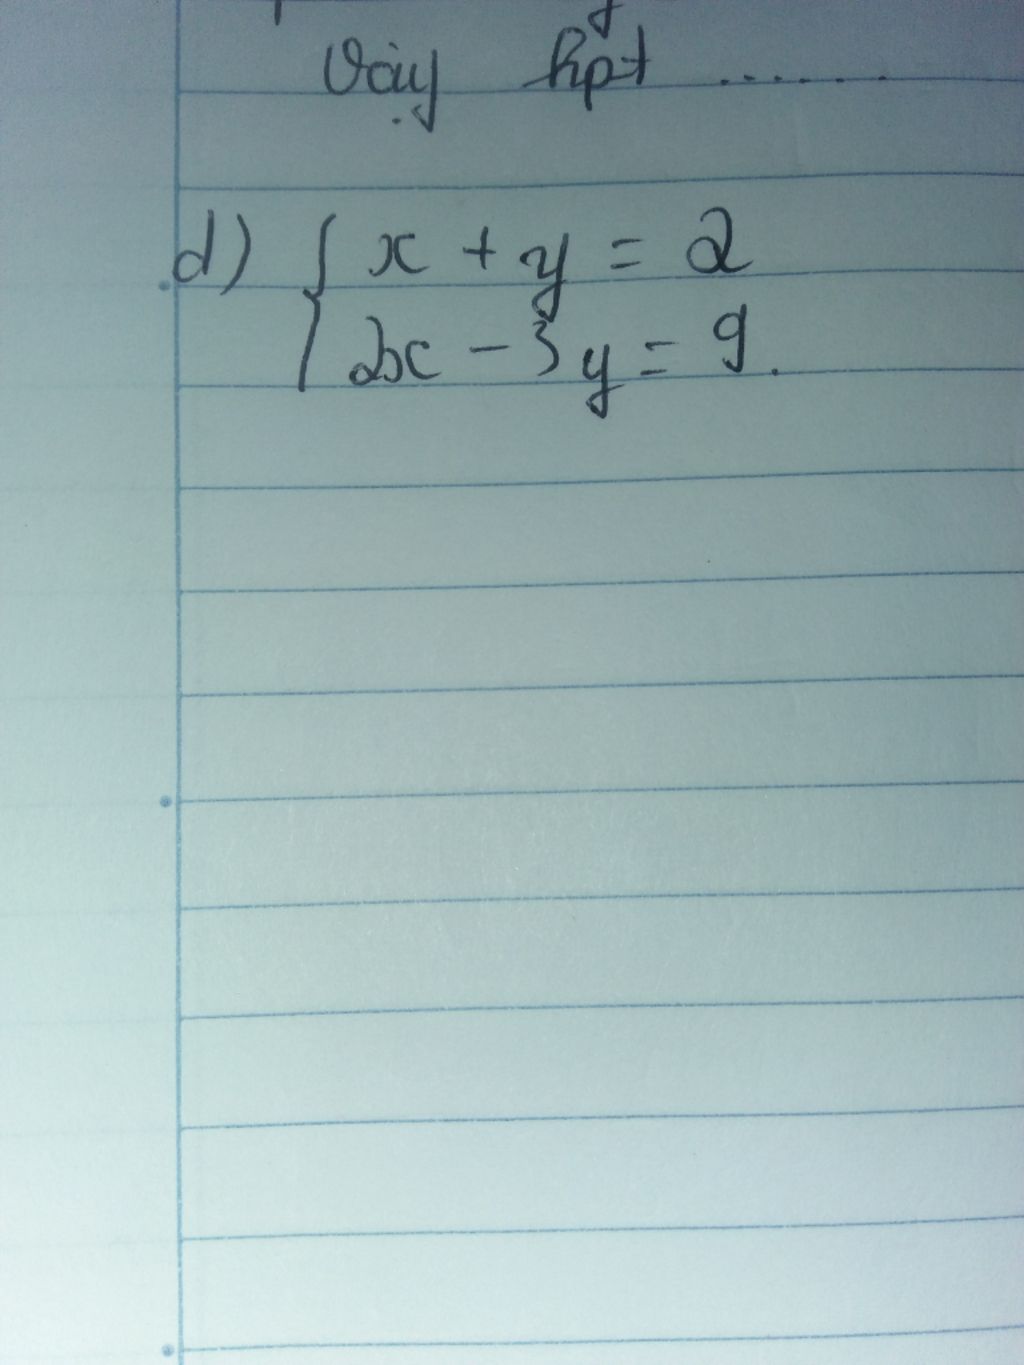 Vậy hpt .......
d) { x + y = 2
2x - 3y = 9.